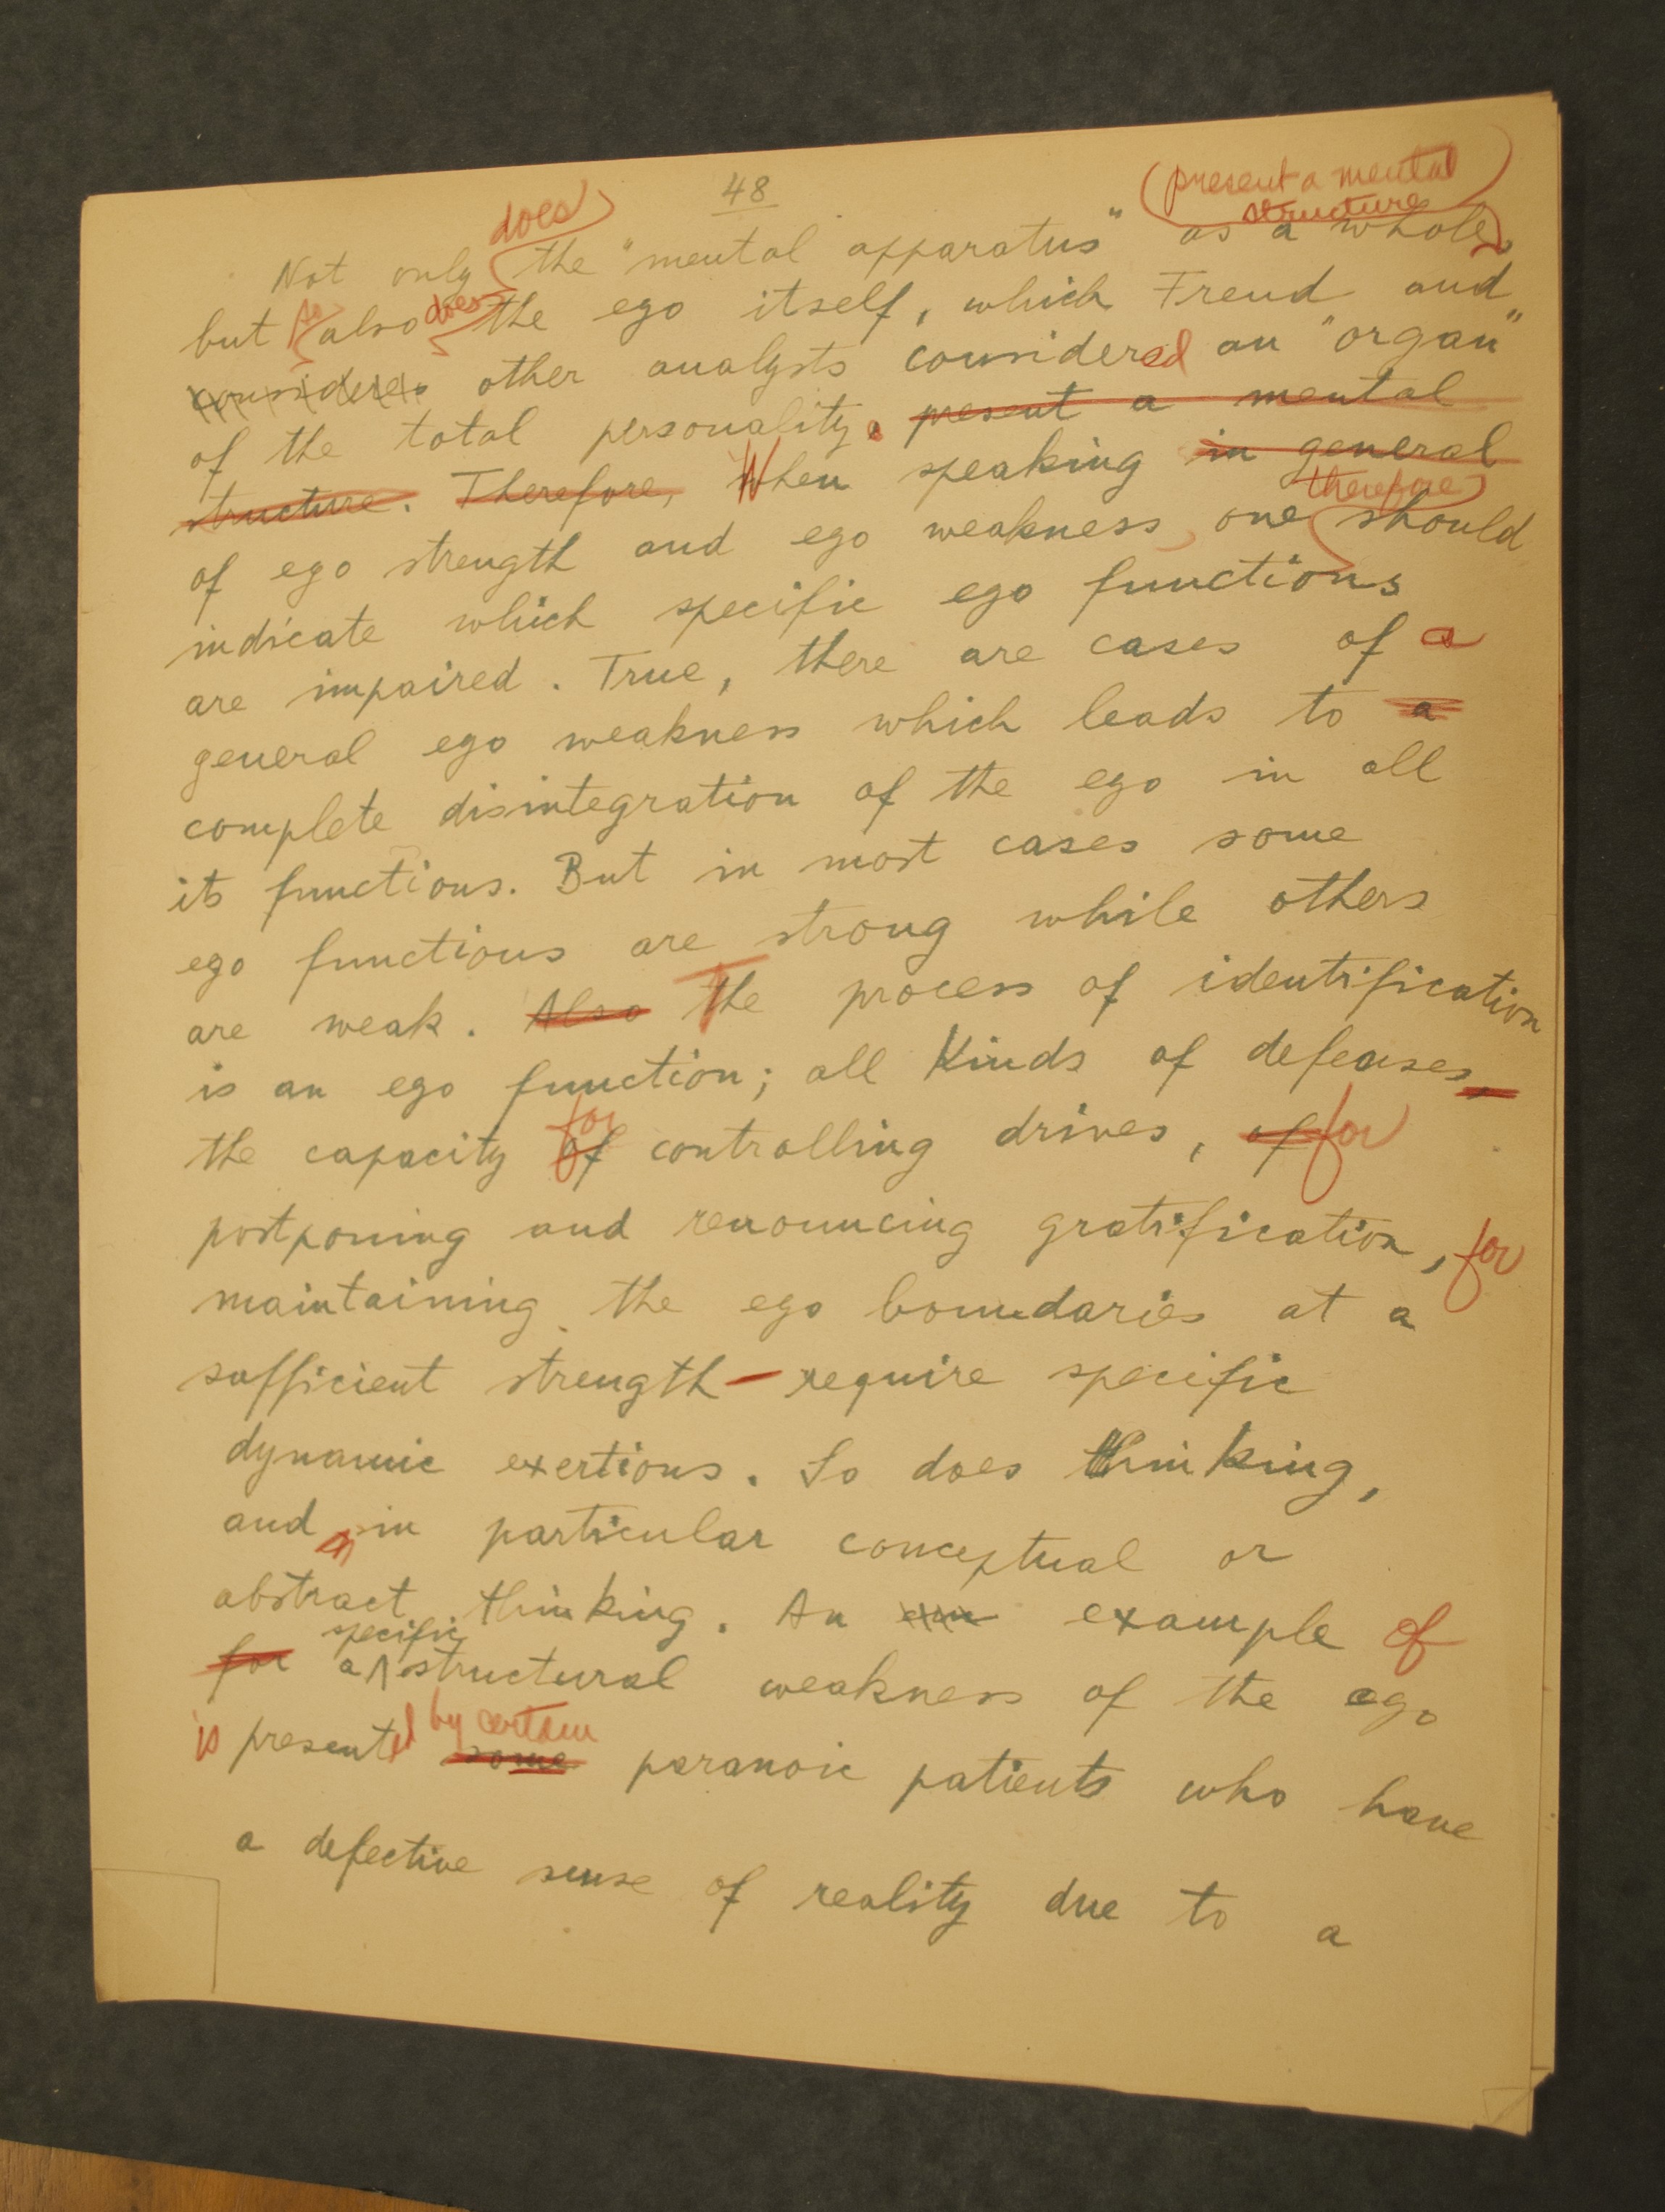 48
present a mental
structure
does
Not only the "mental apparatus" as a whole,
so does
but also the ego itself, which Freud and
considers other analysts considered an "organ"
of the total personality. present a mental
structure. Therefore, When speaking in general
therefore
of ego strength and ego weakness, one should
indicate which specific ego functions
are impaired. True, there are cases of a
general ego weakness which leads to a
complete disintegration of the ego in all
its functions. But in most cases some
ego functions are strong while others
are weak. Also The process of identification
is an ego function; all Kinds of defenses,
for
the capacity of controlling drives, of for
postponing and renouncing gratification, for
maintaining the ego boundaries at a
sufficient strength — require specific
dynamic exertions. So does thinking,
and, in particular conceptual or
abstract thinking. An example of
specific
for a structural weakness of the ego
by certain
is presented some paranoic patients who have
a defective sense of reality due to a